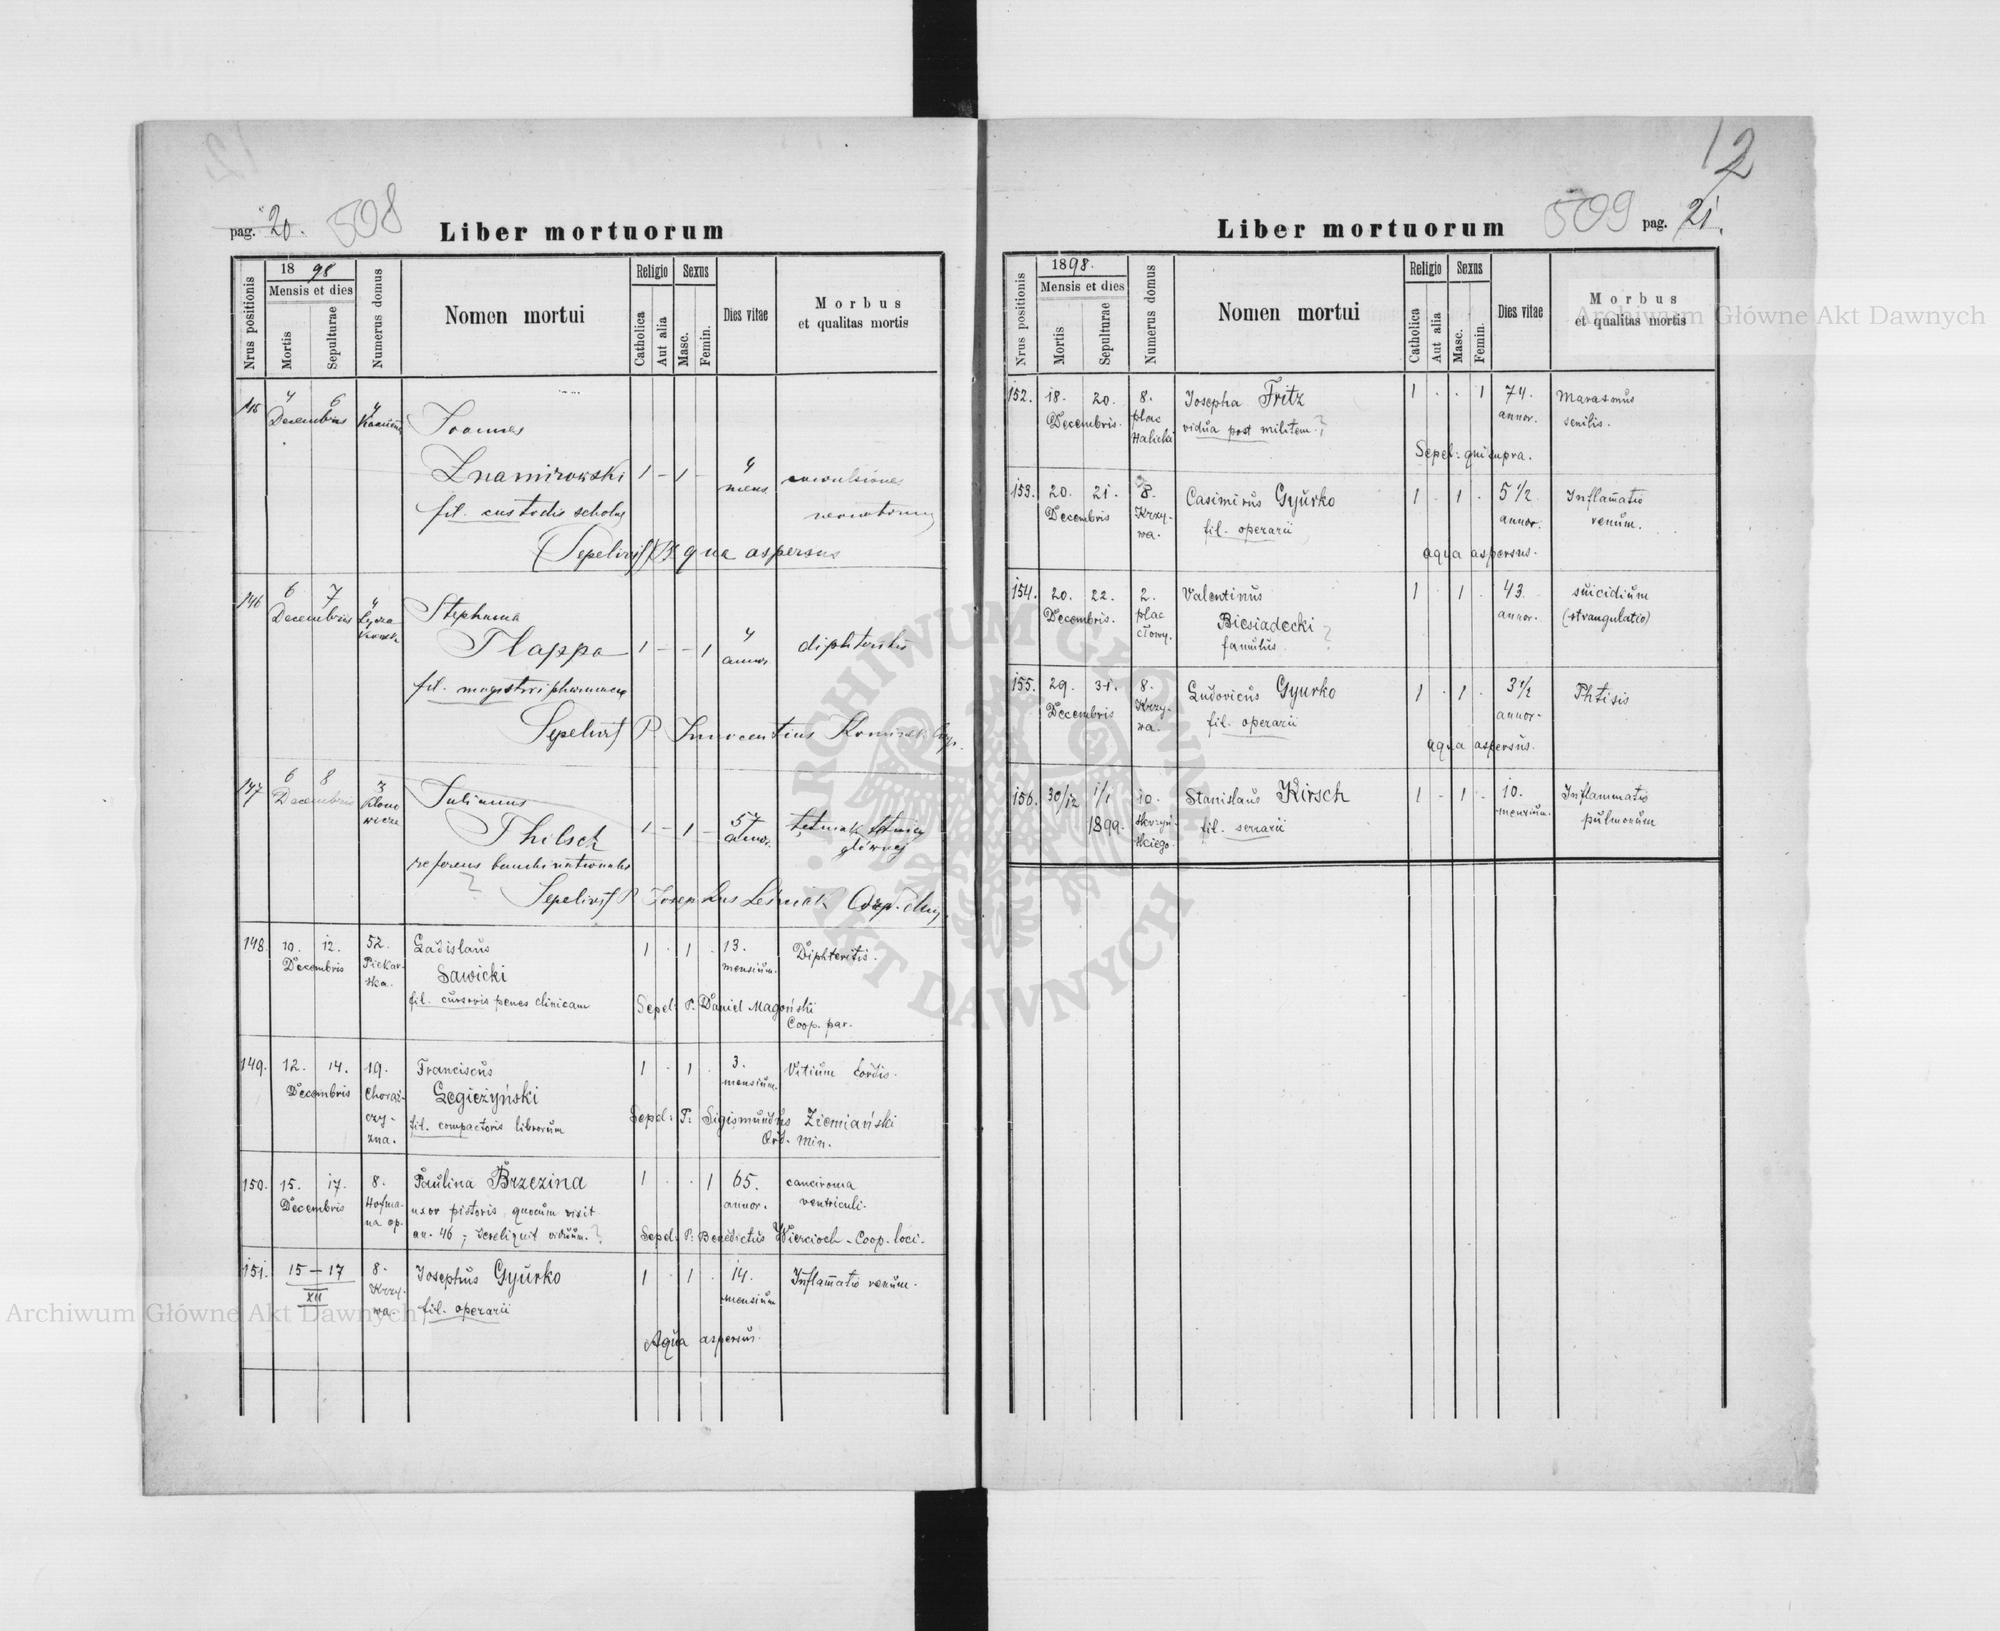 12
pag. 20. 508
Liber mortuorum
Nrus positionis
1898
Mensis et dies
Mortis
Sepulturae
Numerus domus
Nomen mortui
Religio
Catholica
Aut alia
Sexus
Masc.
Femin.
Dies vitae
Morbus
et qualitas mortis
145 4 6 4
Decembris
Joannes
Znamirowski 1 - 1 - 4
mens.
convulsiones
fil. custodis scholae
Sepelivit Aqua aspersus
146 6 7 4
Decembris
Stephania
Tlappa 1 - - 1 4
annor.
diphteritis
fil. magistri pharmaciae
Sepelivit P. Innocentius
147 6 8 3
Decembris
Julianus
Thilsch 1 - 1 - 57
annor.
tętniak tętnicy
głównej
referens banchi nationalis
?
Sepelivit P. Josephus Leśniak
148. 10. 12. 52. Ladislaus 1 . 1 . 13. Diphteritis.
Decembris Piekar- mensium.
ska. Sawicki
fil. cursoris penes clinicam
Sepel: P. Daniel Magoński
Coop. par.
149. 12. 14. 19. Franciscus 1 . 1 . 3. Vitium Cordis.
Decembris Chorąż- mensium.
czy- Legieżyński
zna. fil. compactoris librorum
Sepel: P: Sigismundus Ziemiański
Ord. Min.
150. 15. 17. 8. Paulina Brzezina 1 . . 1 65. canciroma
Decembris Hofma- uxor pistoris, quocum vixit annor. ventriculi.
na op. an. 46, dereliquit viduum. ?
Sepel: P: Benedictus Wiercioch - Coop. loci.
151. 15 - 17 8. Josephus Gyurko 1 . 1 . 14. Inflam̄atio renum.
XII Krzy- mensium
wa. fil. operarii
Aqua aspersus.
12
Liber mortuorum
509 pag. 21.
Nrus positionis
1898.
Mensis et dies
Mortis
Sepulturae
Numerus domus
Nomen mortui
Religio
Catholica
Aut alia
Sexus
Masc.
Femin.
Dies vitae
Morbus
et qualitas mortis
152. 18. 20. 8. Josepha Fritz 1 . . 1 74. Marasmus
Decembris. plac vidua post militem. ? annor. senilis.
Halicki
Sepel: qui supra.
153. 20. 21. 8. Casimirus Gyurko 1 . 1 . 5 1/2 Inflam̄atio
Decembris Krzy- fil. operarii annor. renum.
wa.
aqua aspersus.
154. 20. 22. 2. Valentinus 1 . 1 . 43. suicidium
Decembris. plac annor. (strangulatio)
cłowy. Biesiadecki ?
famulus
155. 29. 31. 8. Ludovicus Gyurko 1 . 1 . 3 1/2 Phtisis
Decembris Krzy- fil. operarii annor.
wa.
aqua aspersus.
156. 30/12 1/1 10. Stanislaus Kirsch 1 - 1 - 10. Inflammatio
1899. Skrzyń- fil. serrarii mensium. pulmonum
skiego.
Archiwum Główne Akt Dawnych
Archiwum Główne Akt Dawnych
ARCHIWUM GŁÓWNE AKT DAWNYCH